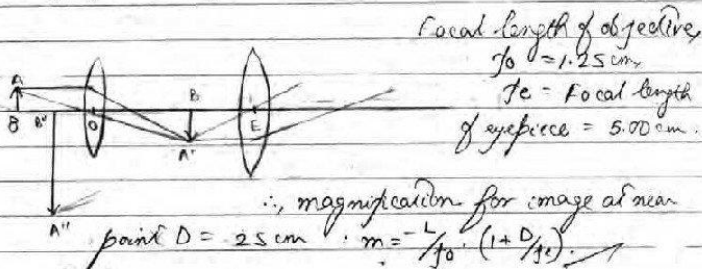 Focal length of objective,
fo = 1.25 cm,
fe = Focal length
of eyepiece = 5.00 cm.
A
B B" O B E
A'
A"
∴, magnification for image at near
point D = 25 cm ∴ m = -L/fo · (1 + D/fe).